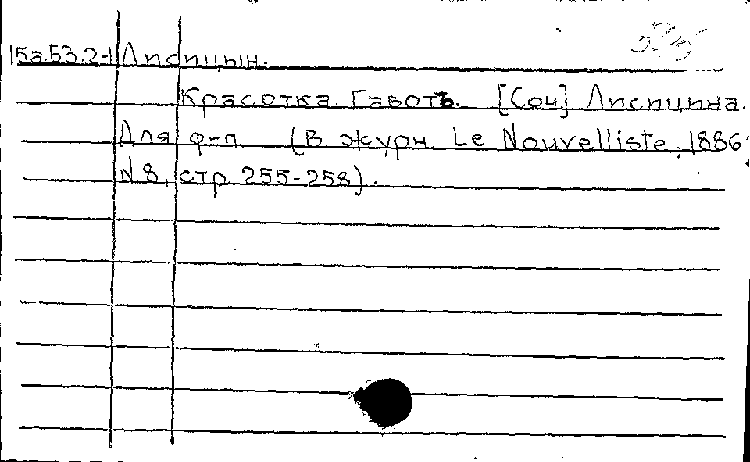 15a.53.2-1 Лисицын.
Красотка. Гавотъ. [Соч] Лисицина.
Для ф-п. (В журн. Le Nouvelliste, 1886,
N 8, стр. 255-258).